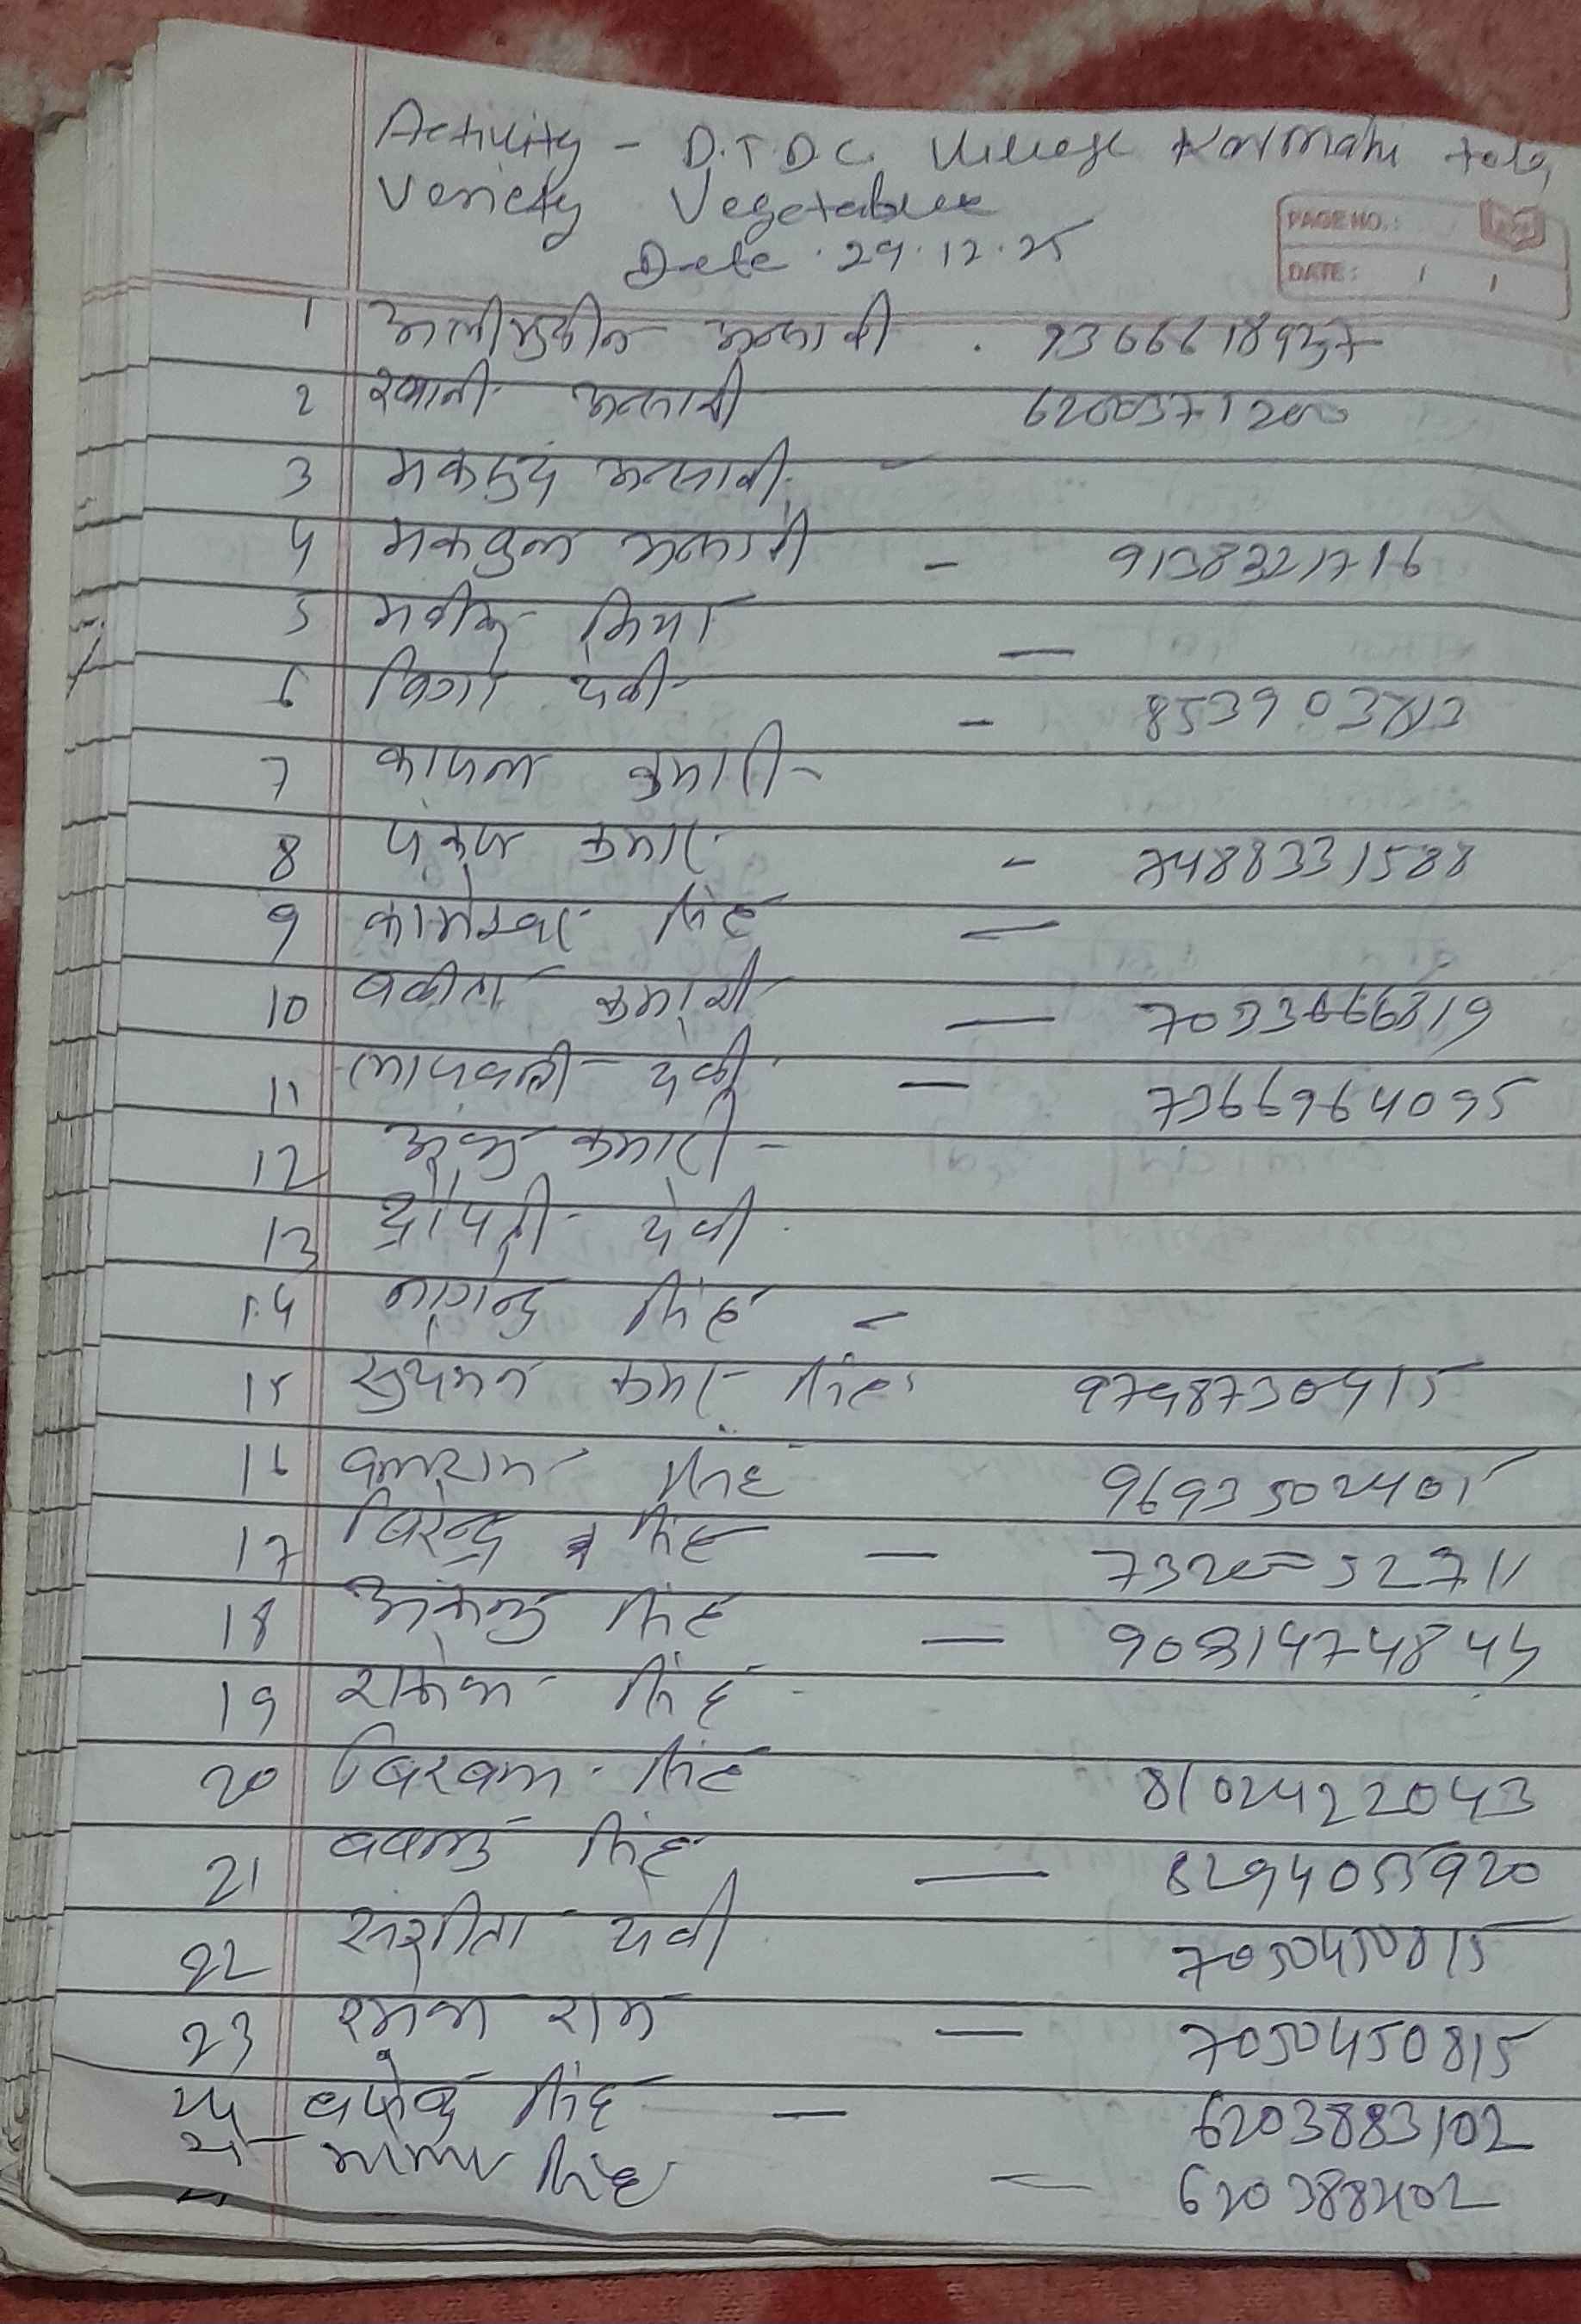 Activity - D.T.D.C. Village Karmahi tola
Veriety Vegetables
Date . 29.12.25
PAGE NO.:
DATE:
1 अलीमुदीन अन्सारी . 9366618937
2 रवानी अन्सारी 6200371200
3 मकसुद अन्सारी -
4 मकबुल अन्सारी - 9138321716
5 मियां -
6 देवी - 853903813
7 काजल कुमारी -
8 पंकज कुमार - 7488331588
9 कामेश्वर सिंह -
10 बबीता कुमारी - 7033666819
11 लाजवती देवी - 7366964095
12 कुमारी -
13 द्रोपती देवी
14 नागेन्द्र सिंह -
15 कुमार सिंह 9748730415
16 बलराम सिंह 9693502401
17 बिरेन्द्र सिंह - 52711
18 सिंह - 9091474845
19 राकेश सिंह -
20 बिरबल सिंह 8102422043
21 बबलु सिंह - 8294055920
22 संगीता देवी 7050450815
23 रमेश राम - 7050450815
24 सिंह - 6203883102
25 सिंह -